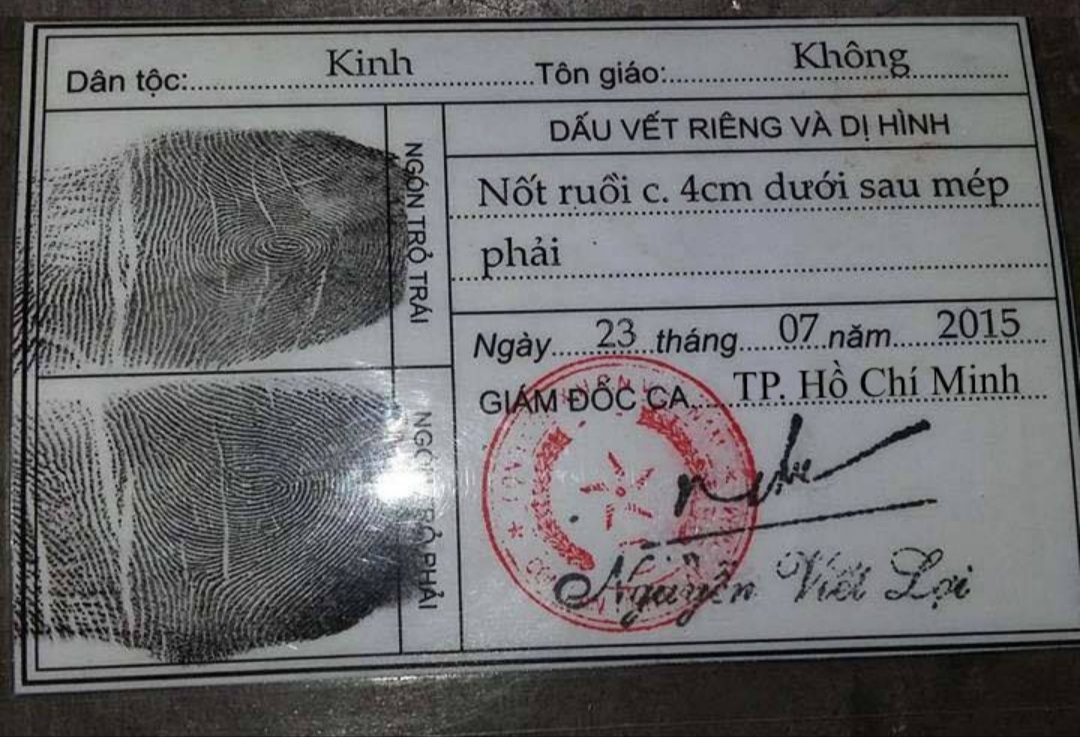 Dân tộc: Kinh Tôn giáo: Không
NGÓN TRỎ TRÁI
NGÓN TRỎ PHẢI
DẤU VẾT RIÊNG VÀ DỊ HÌNH
Nốt ruồi c. 4cm dưới sau mép
phải
Ngày 23 tháng 07 năm 2015
GIÁM ĐỐC CA TP. Hồ Chí Minh
Nguyễn Viết Lợi